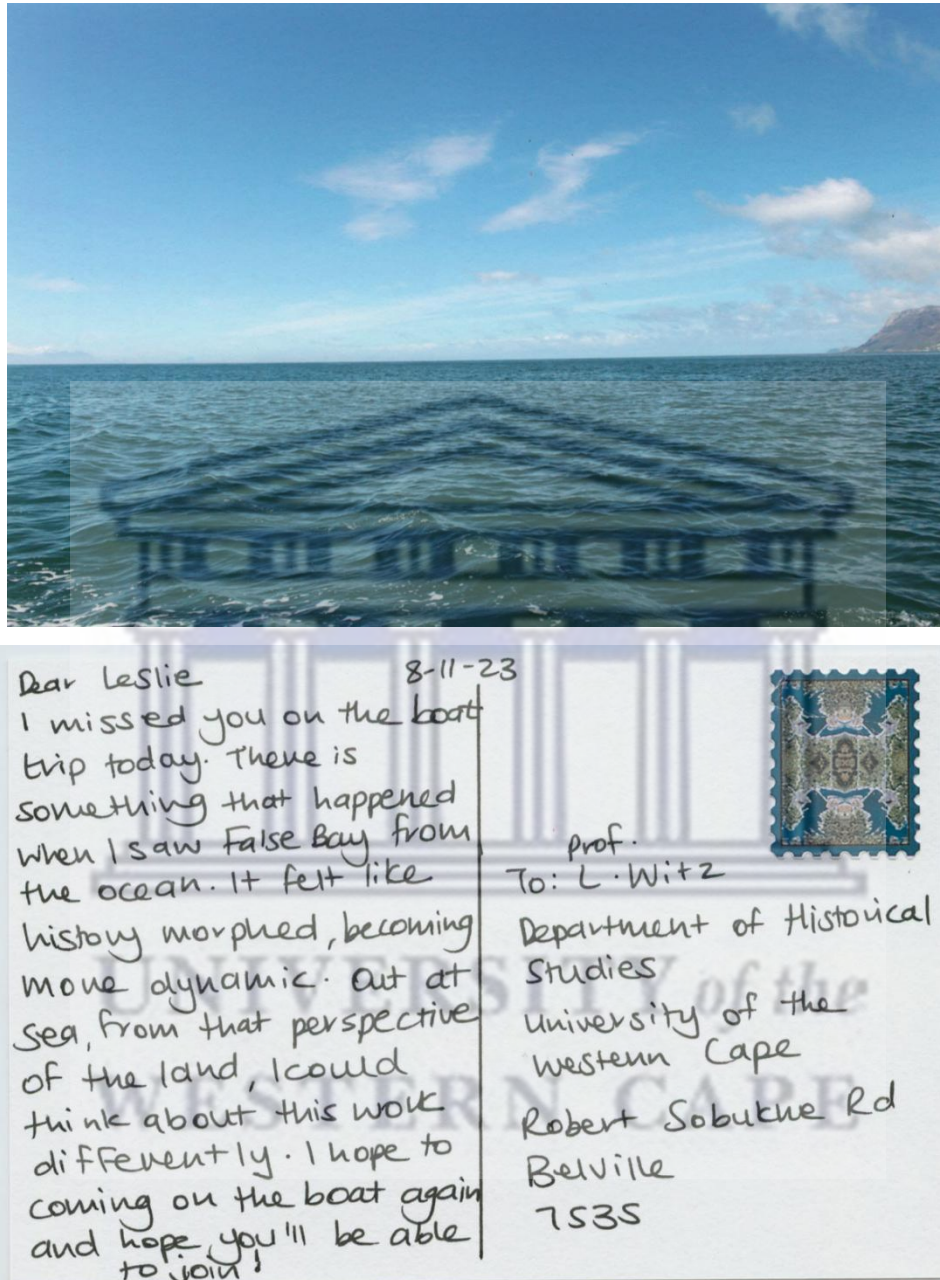 Dear Leslie
8-11-23
I missed you on the boat
trip today. There is
something that happened
when I saw False Bay from
the ocean. It felt like
history morphed, becoming
more dynamic. Out at
sea, from that perspective
of the land, I could
think about this work
differently. I hope to
coming on the boat again
and hope you'll be able
to join!
Prof.
To: L. Witz
Department of Historical
Studies
University of the
Western Cape
Robert Sobukwe Rd
Belville
7535
UNIVERSITY of the
WESTERN CAPE